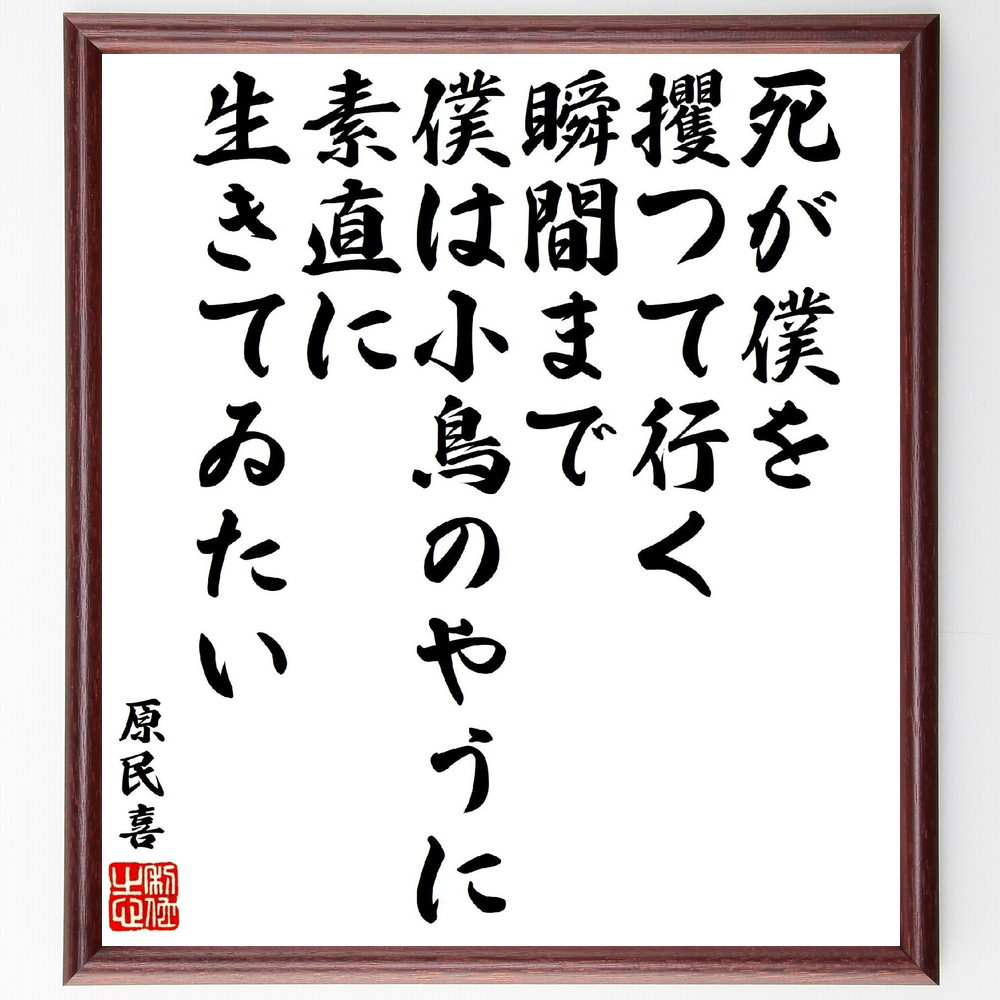 死が僕を
攫つて行く
瞬間まで
僕は小鳥のやうに
素直に
生きてゐたい
原民喜